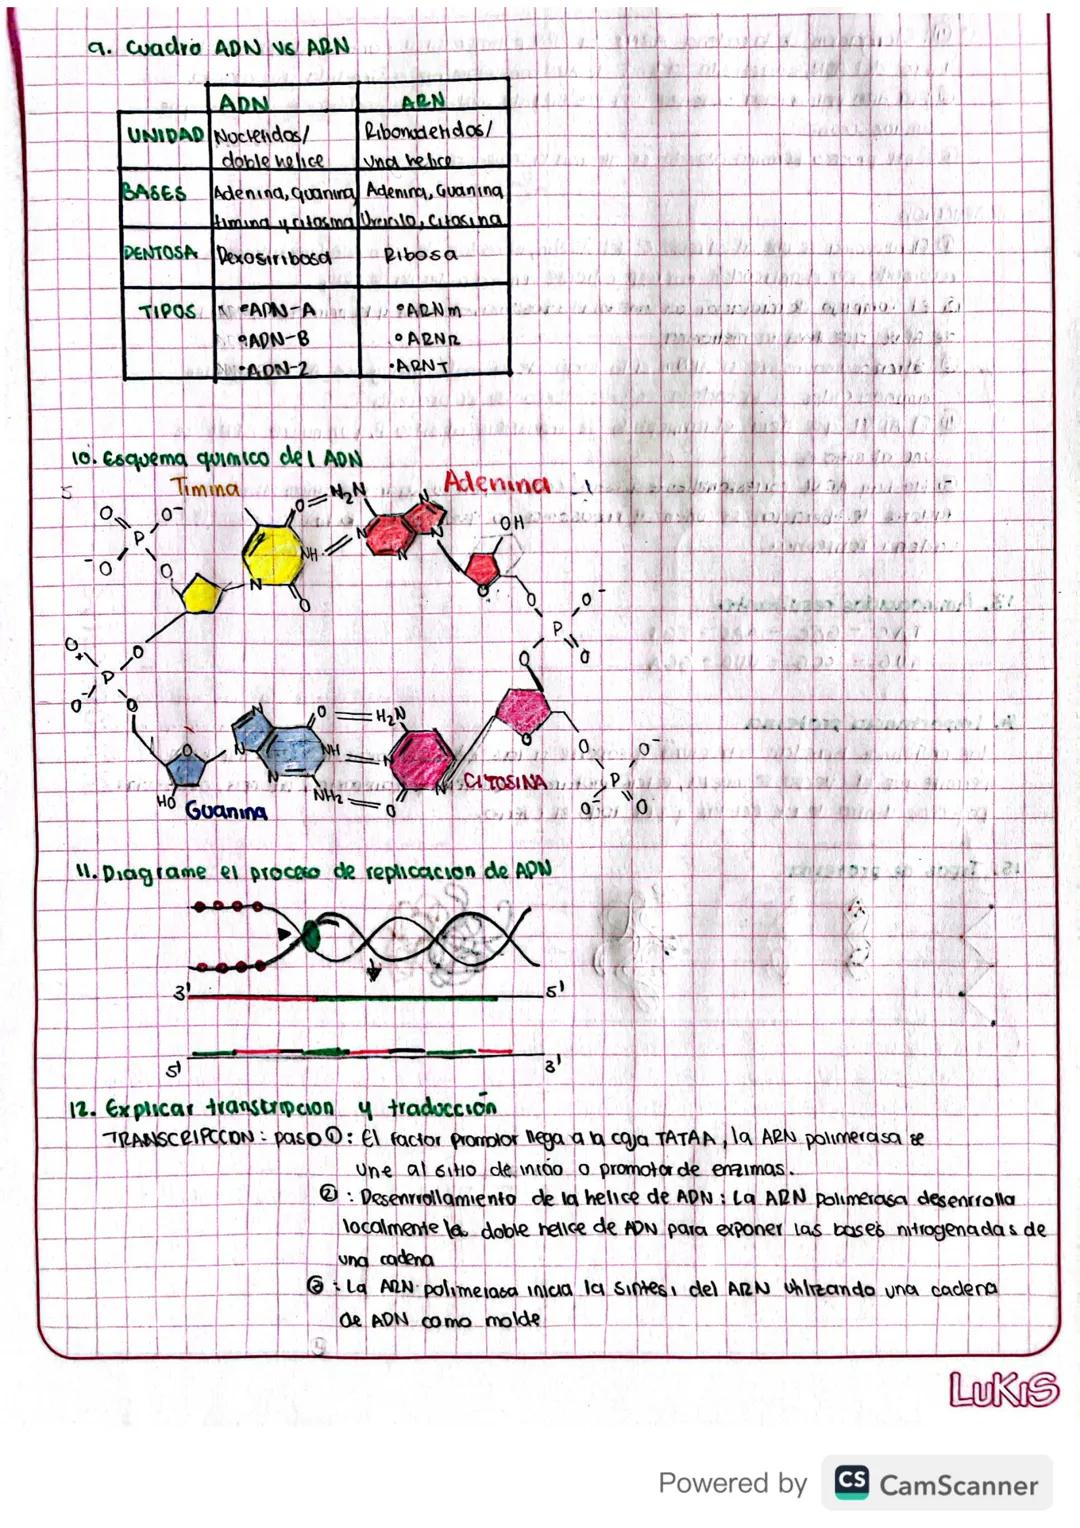 9. Cuadro ADN VS ARN
ADN ARN
UNIDAD Nucleotidos/ Ribonucleotidos/
doble helice una helice
BASES Adenina, guanina, Adenina, Guanina
timina y citosina Uracilo, Citosina
PENTOSA Dexosiribosa Ribosa
TIPOS •ADN-A •ARNm
•ADN-B •ARNR
•ADN-Z •ARNT
10. Esquema quimico del ADN
Timina Adenina
O O- O H2N N N
P NH N N N OH
-O O N O O
O O-
O O P
O- P O O O
O N O H2N
O N NH N O O O-
N NH2 O N CITOSINA P
HO Guanina O- O
11. Diagrame el proceso de replicacion de ADN
3' 5'
5' 3'
12. Explicar transcripcion y traducción
TRANSCRIPCCON: paso ①: El factor promotor llega a la caja TATAA, la ARN polimerasa se
une al sitio de inicio o promotor de enzimas.
②: Desenrrollamiento de la helice de ADN: La ARN polimerasa desenrrolla
localmente la doble helice de ADN para exponer las bases nitrogenadas de
una cadena
③: La ARN polimerasa inicia la sintesi del ARN utilizando una cadena
de ADN como molde
LUKIS
Powered by CS CamScanner